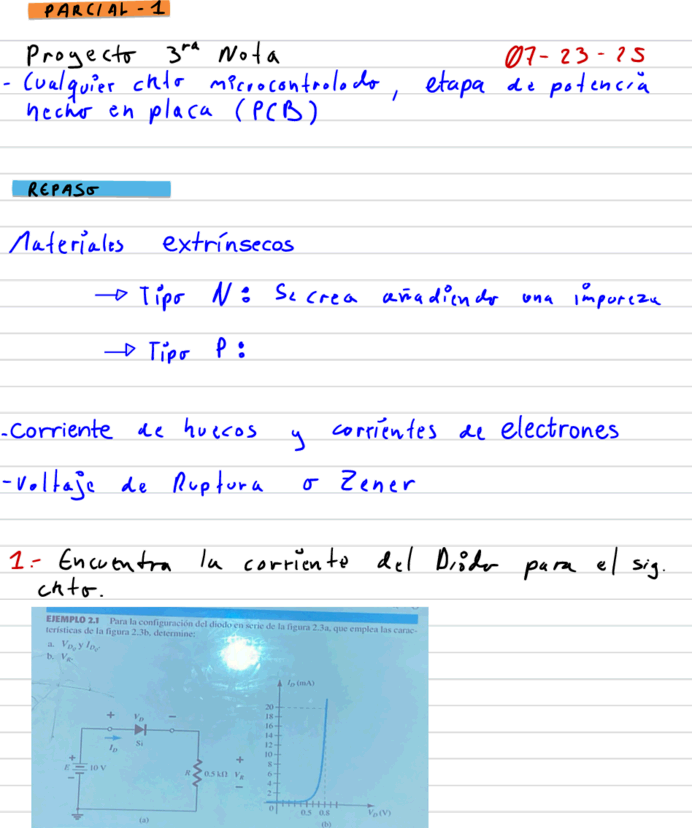 PARCIAL - 1
Proyecto 3ra Nota 07-23-25
- Cualquier ckto microcontrolado, etapa de potencia
hecho en placa (PCB)
REPASO
Materiales extrínsecos
→ Tipo N: Se crea añadiendo una impureza
→ Tipo P:
-Corriente de huecos y corrientes de electrones
-Voltaje de Ruptura o Zener
1.- Encuentra la corriente del Diodo para el sig.
ckto.
EJEMPLO 2.1 Para la configuración del diodo en serie de la figura 2.3a, que emplea las carac-
terísticas de la figura 2.3b, determine:
a. VDQ y IDQ.
b. VR.
ID (mA)
+ VD −
ID Si
E + − 10 V
R 0.5 kΩ + VR −
20
18
16
14
12
10
8
6
4
2
0 0.5 0.8 VD (V)
(a) (b)